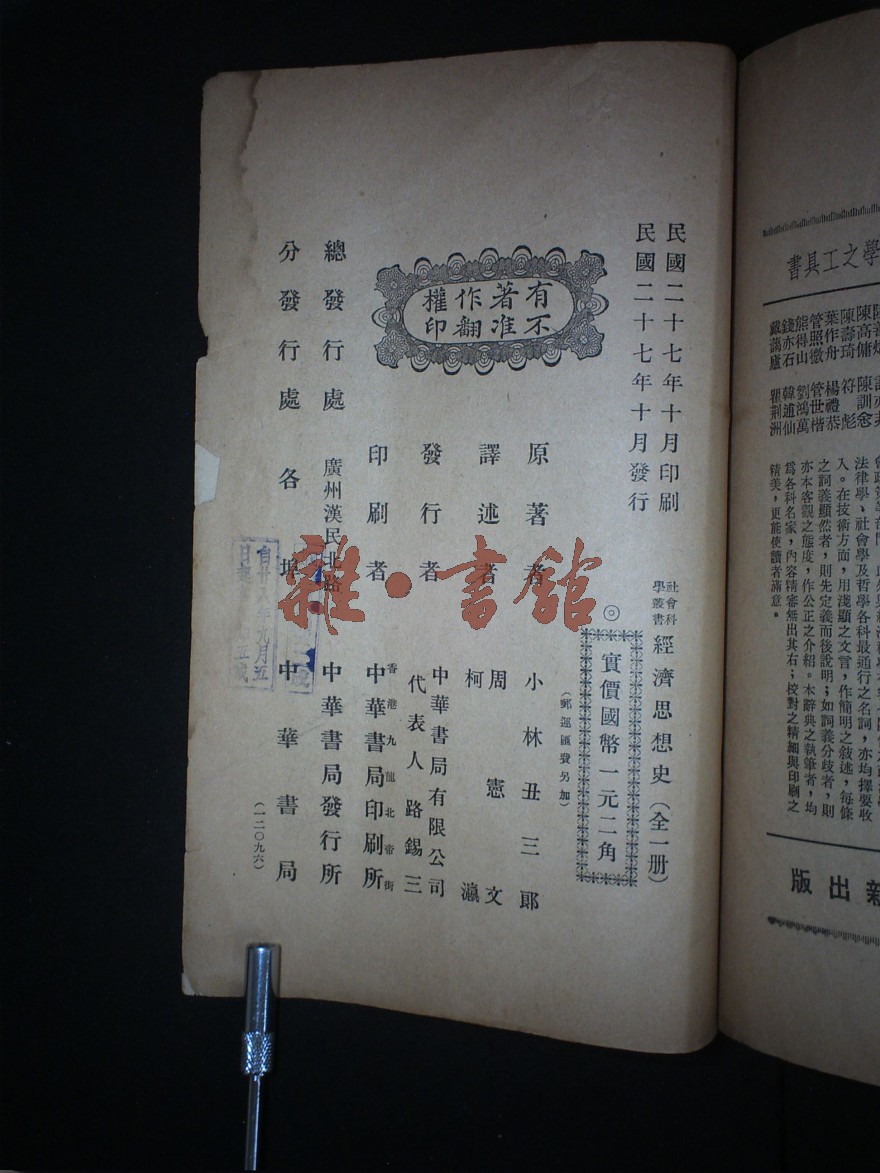 學之工具書
陳高傭
陳壽琦
葉作舟
管照微
熊得山
錢亦石
戴藹廬
陳訓悆
符彪
楊禮恭
管世楷
劉鴻萬
韓逋仙
瞿荆洲
法律學、社會學及哲學各科最通行之名詞,亦均擇要收
入。在技術方面,用淺顯之文言,作簡明之敘述,每條
之詞義顯然者,則先定義而後說明;如詞義分歧者,則
亦本客觀之態度,作公正之介紹。本辭典之執筆者,均
爲各科名家,內容精審無出其右;校對之精細與印刷之
精美,更能使讀者滿意。
新出版
民國二十七年十月印刷
民國二十七年十月發行
社會科學叢書 經濟思想史(全一册)
◎實價國幣一元二角
(郵運匯費另加)
有著作權
不准翻印
原著者 小林丑三郎
譯述者 周憲文
柯瀛
發行者 中華書局有限公司
代表人路錫三
印刷者 香港九龍北帝街
中華書局印刷所
總發行處 廣州漢民北路 中華書局發行所
分發行處 各埠中華書局
(一二〇九六)
自廿八年九月五
雜·書館